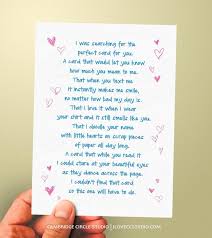 I was searching for the
perfect card for you.
A card that would let you know
how much you mean to me.
That when you text me
it instantly makes me smile,
no matter how bad my day is.
That I love it when I wear
your shirt and it still smells like you.
That I doodle your name
with little hearts on scrap pieces
of paper all day long.
A card that while you read it
I could stare at your beautiful eyes
as they dance across the page.
I couldn't find that card
so this one will have to do.
CAMBRIDGE CIRCLE STUDIO | ILOVECCSTUDIO.COM